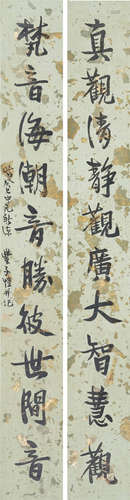 真觀清靜觀廣大智慧觀
梵音海潮音勝彼世間音
豐子愷并記